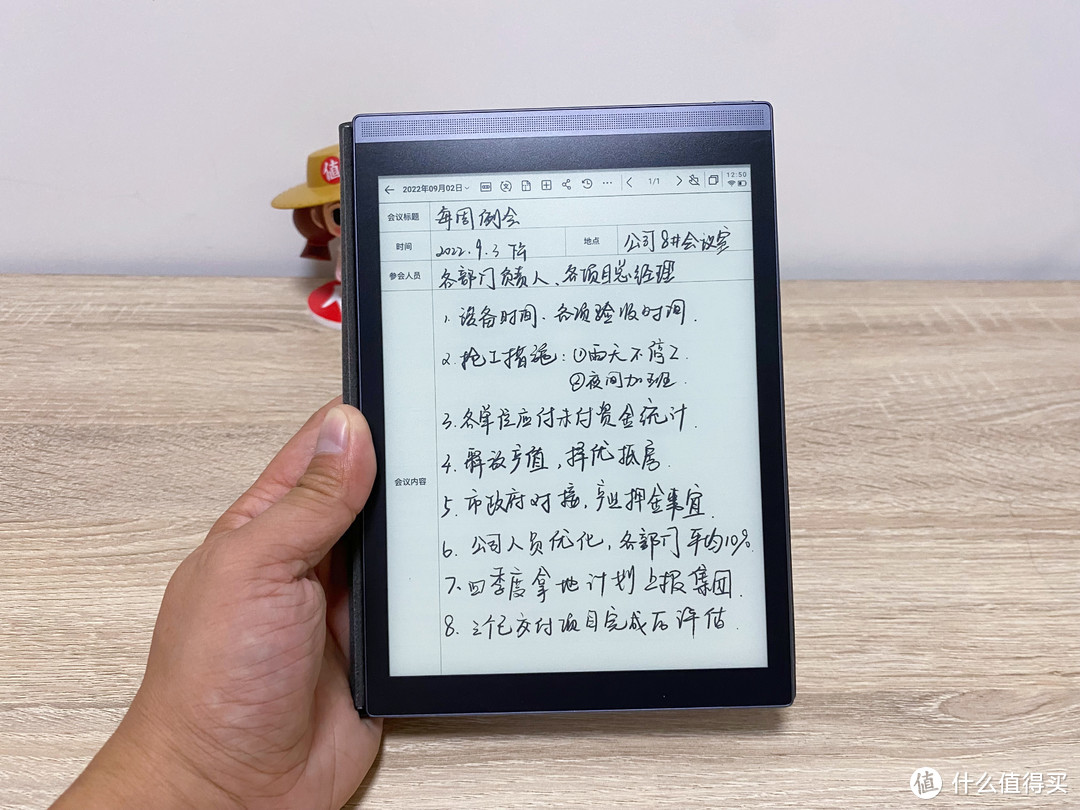 值
2022年09月02日
1/1
12:50
会议标题 每周例会
时间 2022.9.3 下午 地点 公司8#会议室
参会人员 各部门负责人、各项目总经理
会议内容
1. 设备时间、各项验收时间.
2. 抢工措施:①雨天不停工.
②夜间加班.
3. 各单位应付未付资金统计.
4. 释放产值,择优抵房.
5. 市政府对接,押金事宜.
6. 公司人员优化,各部门平均10%.
7. 四季度拿地计划上报集团.
8. 三个已交付项目完成后评估.
值 什么值得买